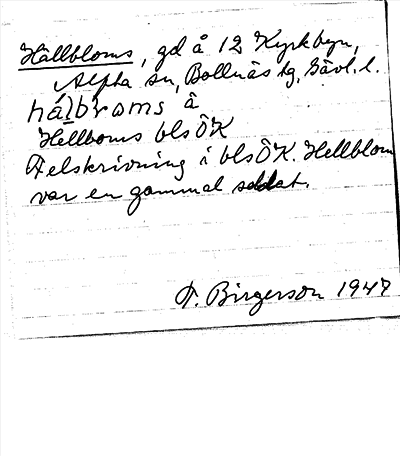 Hällbloms, gd å 12 Kyrkbyn,
Alfta sn, Bollnäs tg, Gävl. l.
hálbroms å
Hellboms bls ÖK
Felskrivning i bls ÖK. Hellblom
var en gammal soldat.
F. Birgerson 1947